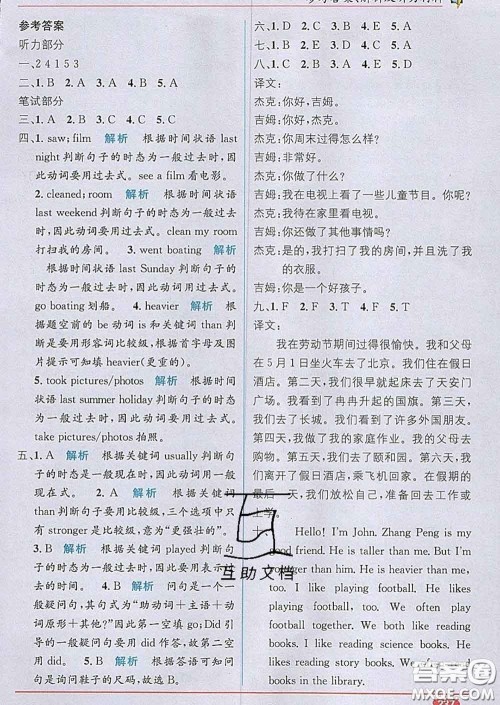 参考答案
听力部分
一、2 4 1 5 3
二、1. B 2. A 3. C 4. B 5. A
笔试部分
三、1. A 2. B 3. C 4. C 5. C
四、1. saw; film 解析 根据时间状语 last
night 判断句子的时态为一般过去时，因
此动词要用过去式。see a film 看电影。
2. cleaned; room 解析 根据时间状语
last weekend 判断句子的时态为一般过去
时，因此动词要用过去式。clean my room
打扫我的房间。 3. went boating 解析
根据时间状语 last Sunday 判断句子的时
态为一般过去时，因此动词要用过去式。
go boating 划船。 4. heavier 解析 根
据题空前的 be 动词 is 和关键词 than 判断
是要用形容词比较级，根据首字母及图
片提示可知填 heavier(更重的)。
5. took pictures/photos 解析 根据时间
状语 last summer holiday 判断句子的时态
为一般过去时，因此动词要用过去式。
take pictures/photos 拍照。
五、1. B 解析 根据关键词 usually 判断句
子的时态是一般现在时，动词用一般
现在式。 2. A 解析 根据关键词
than 判断此句为比较级，三个选项中只
有 stronger 是比较级，意为“更强壮的”。
3. B 解析 根据关键词 played 判断句
子的时态是一般过去时，因此要用表示过
去的时间状语。 4. B 解析 问句是一个一
般疑问句，其句式为“助动词＋主语＋动词
原形＋其他?”因此第一空填 go; Did 引
导的一般疑问句要用 did 作答，故第二空
用 did。 5. B 解析 根据答语可知问
句是询问鞋子的尺码，故选 B。
六、1. D 2. A 3. B 4. E 5. C
七、1. B 2. A 3. B 4. A 5. A
八、1. D 2. A 3. C 4. B 5. E
译文：
杰克：你好，吉姆。
吉姆：你好，杰克。
杰克：你周末过得怎么样？
吉姆：非常好。
杰克：你做了什么？
吉姆：我在电视上看了一些儿童节目。我
喜欢在家里看电视。
杰克：你还做了其他事情吗？
吉姆：是的，我打扫了我的房间，并且洗了我
的衣服。
杰克：你是一个好孩子。
九、1. F 2. F 3. T 4. F 5. T
译文：
我在劳动节期间过得很愉快。我和父母
在 5 月 1 日坐火车去了北京。我们住在假日
酒店。第二天，我们很早就起床去了天安门
广场。我们看到了冉冉升起的国旗。第三
天，我们去了长城。我们看到了许多外国朋友。
第四天，我做了我的家庭作业。我的父母去
购物。第五天，我们去了颐和园。第六天，我
们离开了假日酒店，乘飞机回家。在假期的
最后一天，我们放松自己，准备回去工作或
上学。
十、 Hello! I'm John. Zhang Peng is my
good friend. He is taller than me. But I'm
heavier than him. He likes playing football.
I like playing football, too. We often play
football together. He likes reading books,
too. I like reading story books. We read
books in the library.
互助文档
答案圈
MXQE.COM
237